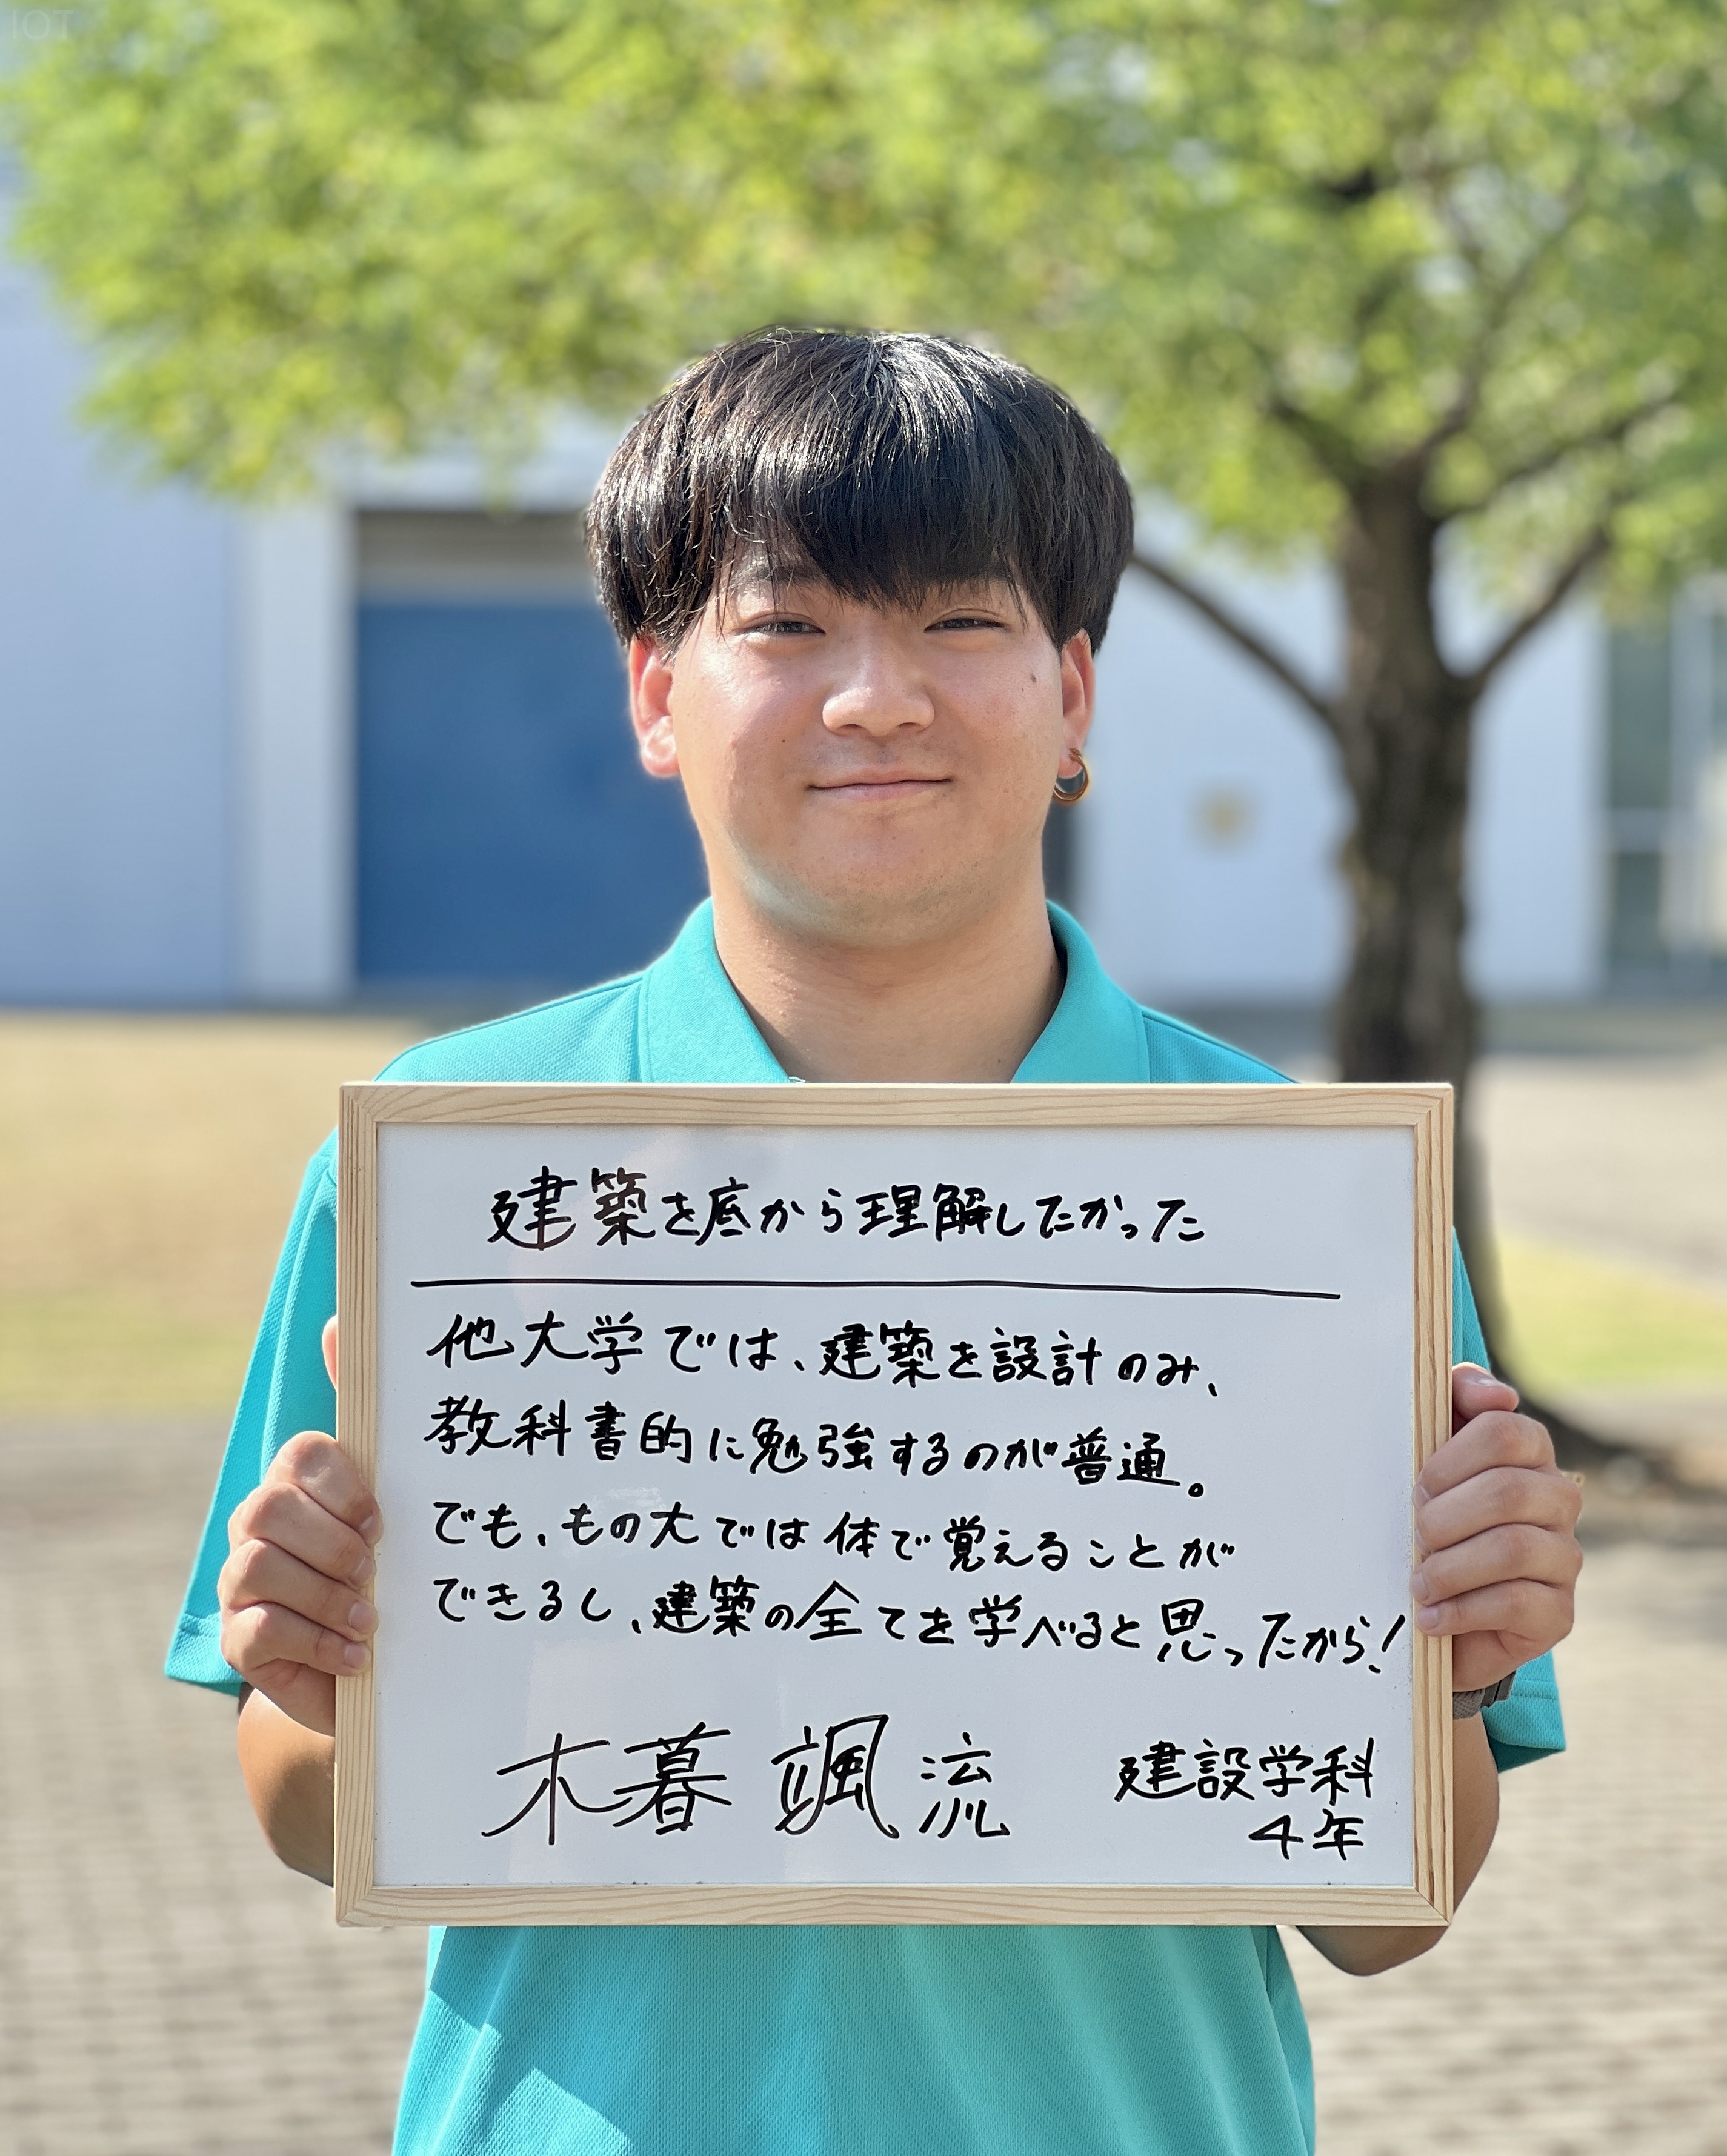 IOT
建築を底から理解したかった
他大学では、建築を設計のみ、
教科書的に勉強するのが普通。
でも、もの大では体で覚えることが
できるし、建築の全てを学べると思ったから!
木暮 颯流
建設学科
4年